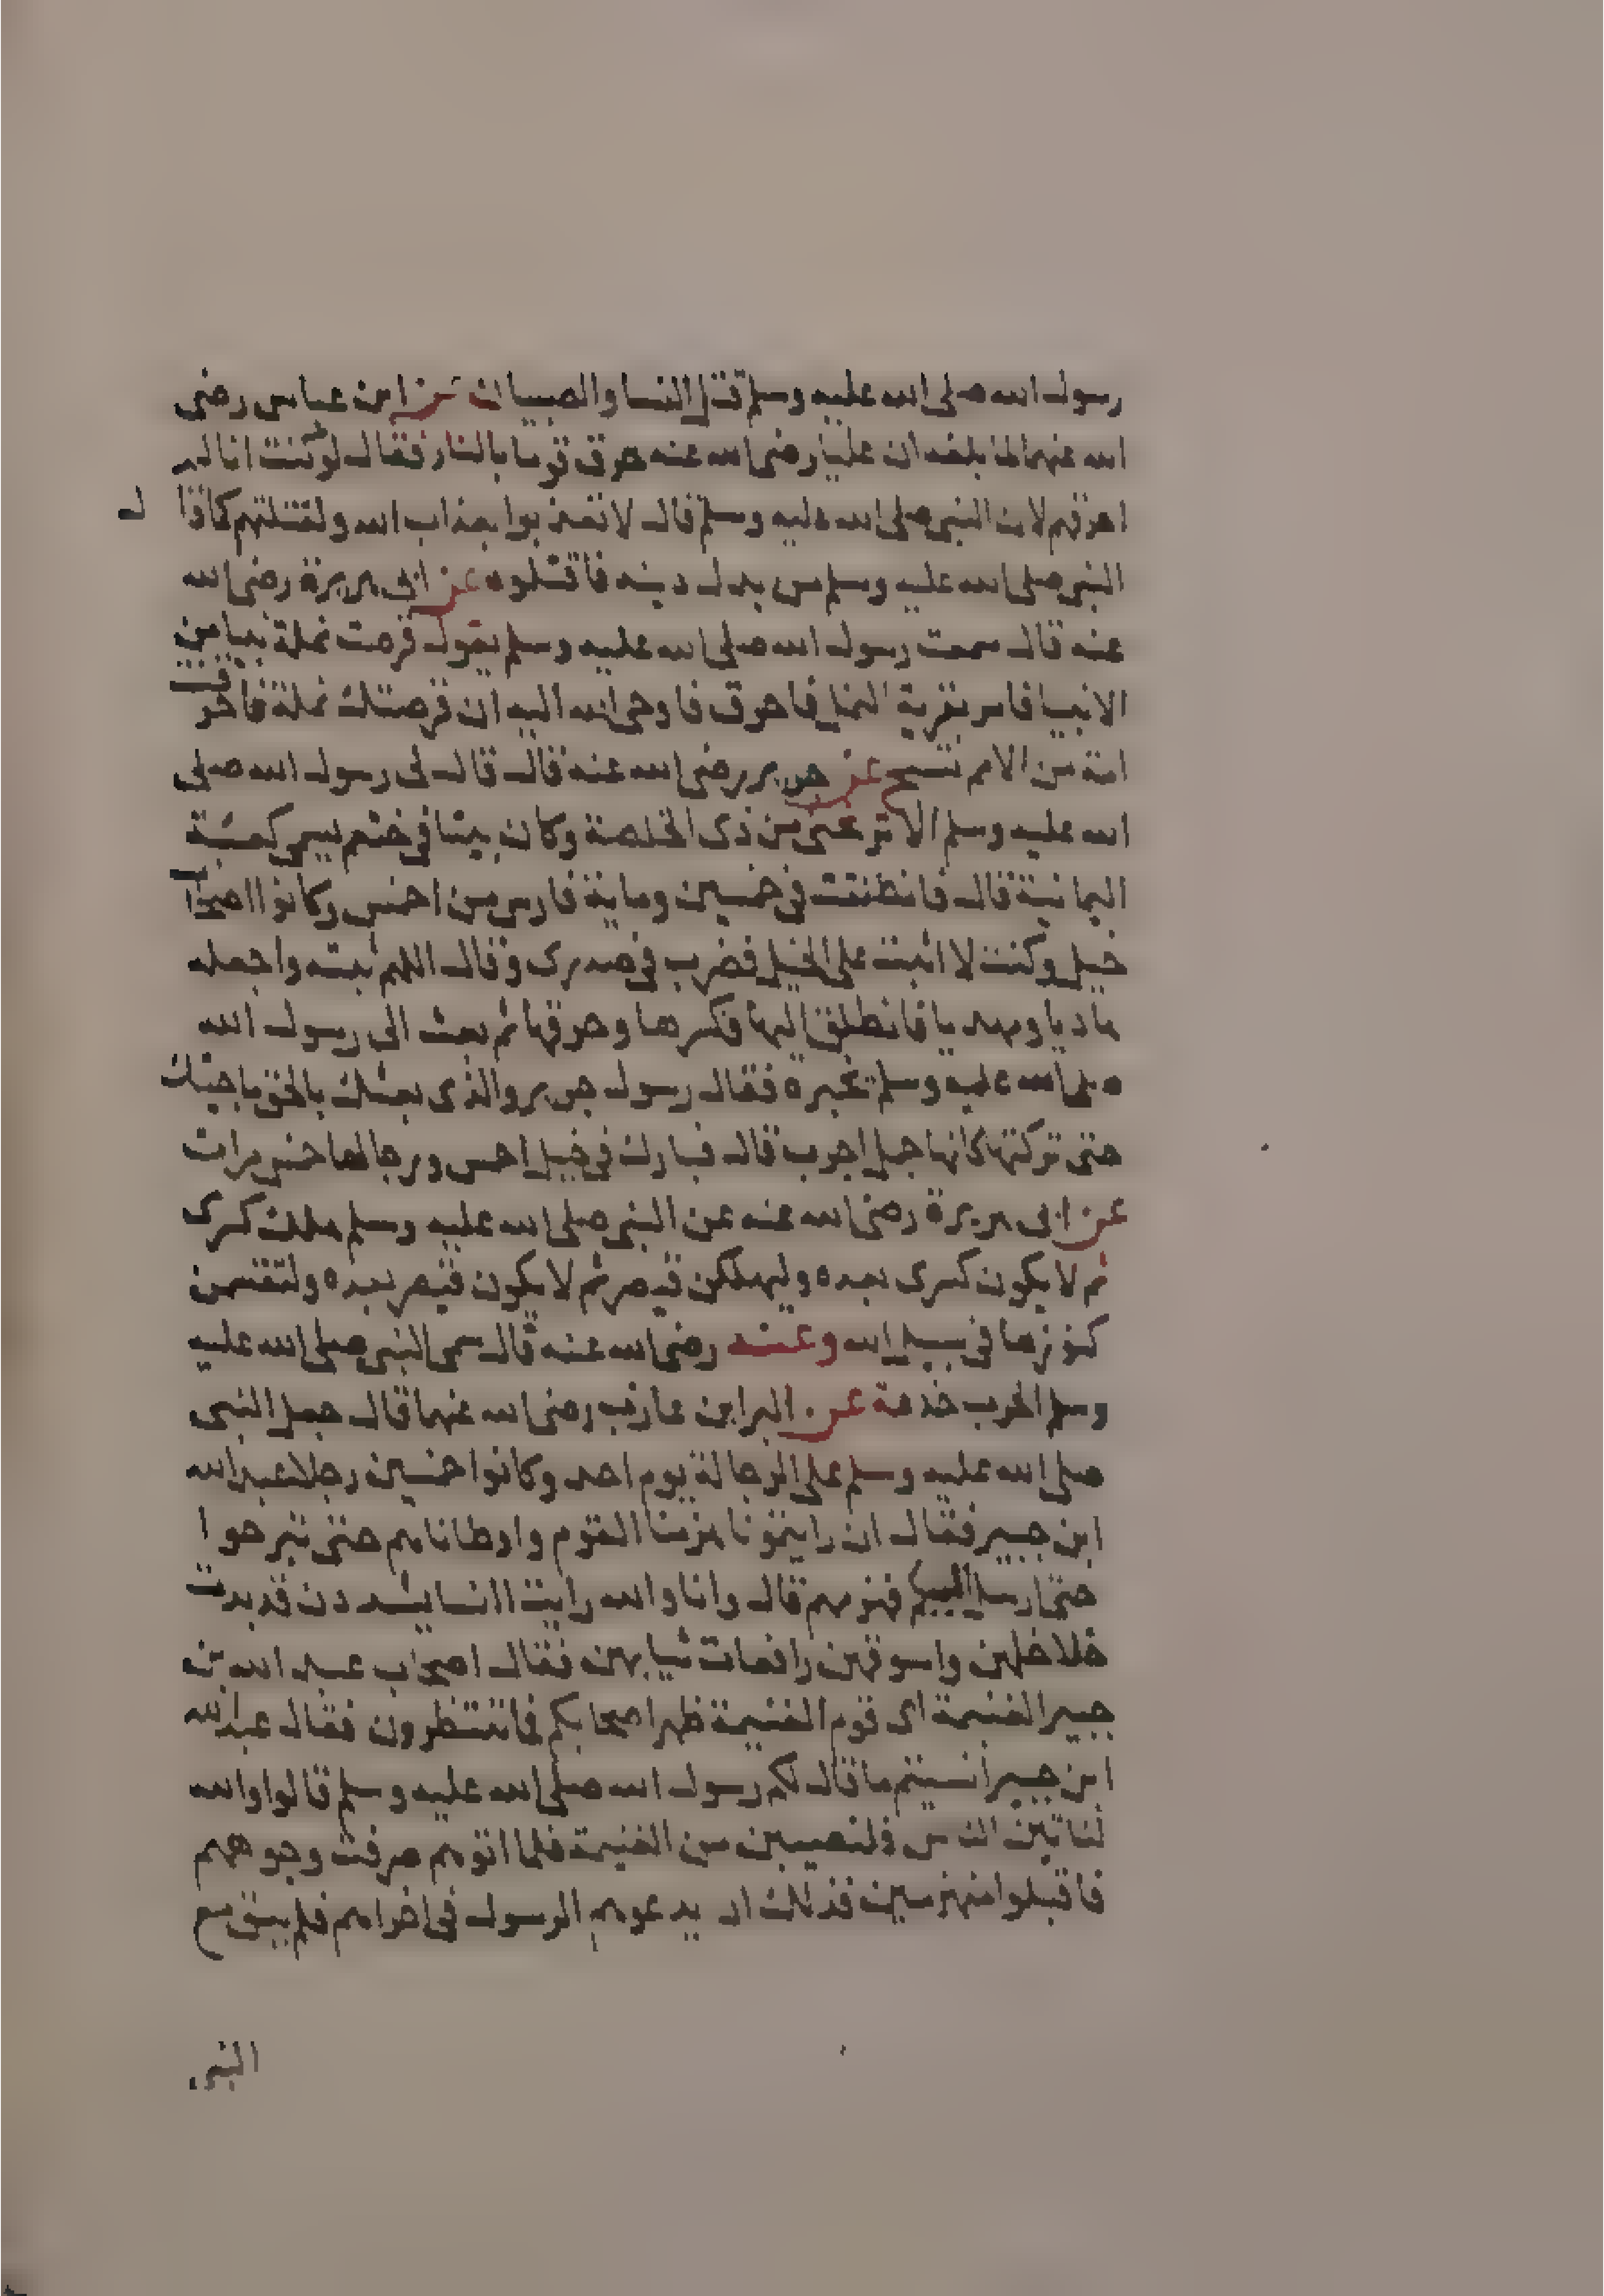 رسول الله صلى الله عليه وسلم قتل النسا والصبيان عن ابن عباس رضى
الله عنهما لما بلغه ان عليا رضى الله عنه حرق قوما بالنار فقال لو كنت انا لم
احرقهم لان النبى صلى الله عليه وسلم قال لا تعذبوا بعذاب الله ولقتلتهم كما قال
النبى صلى الله عليه وسلم من بدل دينه فاقتلوه عن ابى هريرة رضى الله
عنه قال سمعت رسول الله صلى الله عليه وسلم يقول قرصت نملة نبيا من
الانبيا فامر بقرية النمل فاحرق فاوحى الله اليه ان قرصتك نملة فاحرقت
امة من الامم تسبح عن جرير رضى الله عنه قال قال لى رسول الله صلى
الله عليه وسلم الا تريحنى من ذى الخلصة وكان بيتا فى خثعم يسمى كعبة
اليمانية قال فانطلقت فى خمسين وماية فارس من احمس وكانوا اصحاب
خيل وكنت لا اثبت على الخيل فضرب فى صدرى وقال اللهم ثبته واجعله
هاديا ومهديا فانطلق اليها فكسرها وحرقها ثم بعث الى رسول الله
صلى الله عليه وسلم يخبره فقال رسول جرير والذى بعثك بالحق ما جيتك
حتى تركتها كانها جمل اجرب قال فبارك فى خيل احمس ورجالها خمس مرات
عن ابى هريرة رضى الله عنه عن النبى صلى الله عليه وسلم هلك كسرى
ثم لا يكون كسرى بعده وليهلكن قيصر ثم لا يكون قيصر بعده ولتقسمن
كنوزها فى سبيل الله وعنه رضى الله عنه قال سمى النبى صلى الله عليه
وسلم الحرب خدعة عن البرا بن عازب رضى الله عنهما قال جعل النبى
صلى الله عليه وسلم على الرجالة يوم احد وكانوا خمسين رجلا عبد الله
ابن جبير فقال ان رايتمونا هزمنا القوم واوطاناهم حتى تبرحوا
حتى ارسل اليكم فهزموهم قال وانا والله رايت النسا يشددن قد بدت
خلاخلهن واسوقهن رافعات ثيابهن فقال اصحاب عبد الله بن
جبير الغنيمة اى قوم الغنيمة ظهر اصحابكم فما تنتظرون فقال عبد الله
ابن جبير انسيتم ما قال لكم رسول الله صلى الله عليه وسلم قالوا والله
لناتين الناس فلنصيبن من الغنيمة فلما اتوهم صرفت وجوههم
فاقبلوا منهزمين فذلك اذ يدعوهم الرسول فى اخراهم فلم يبق مع
النبى